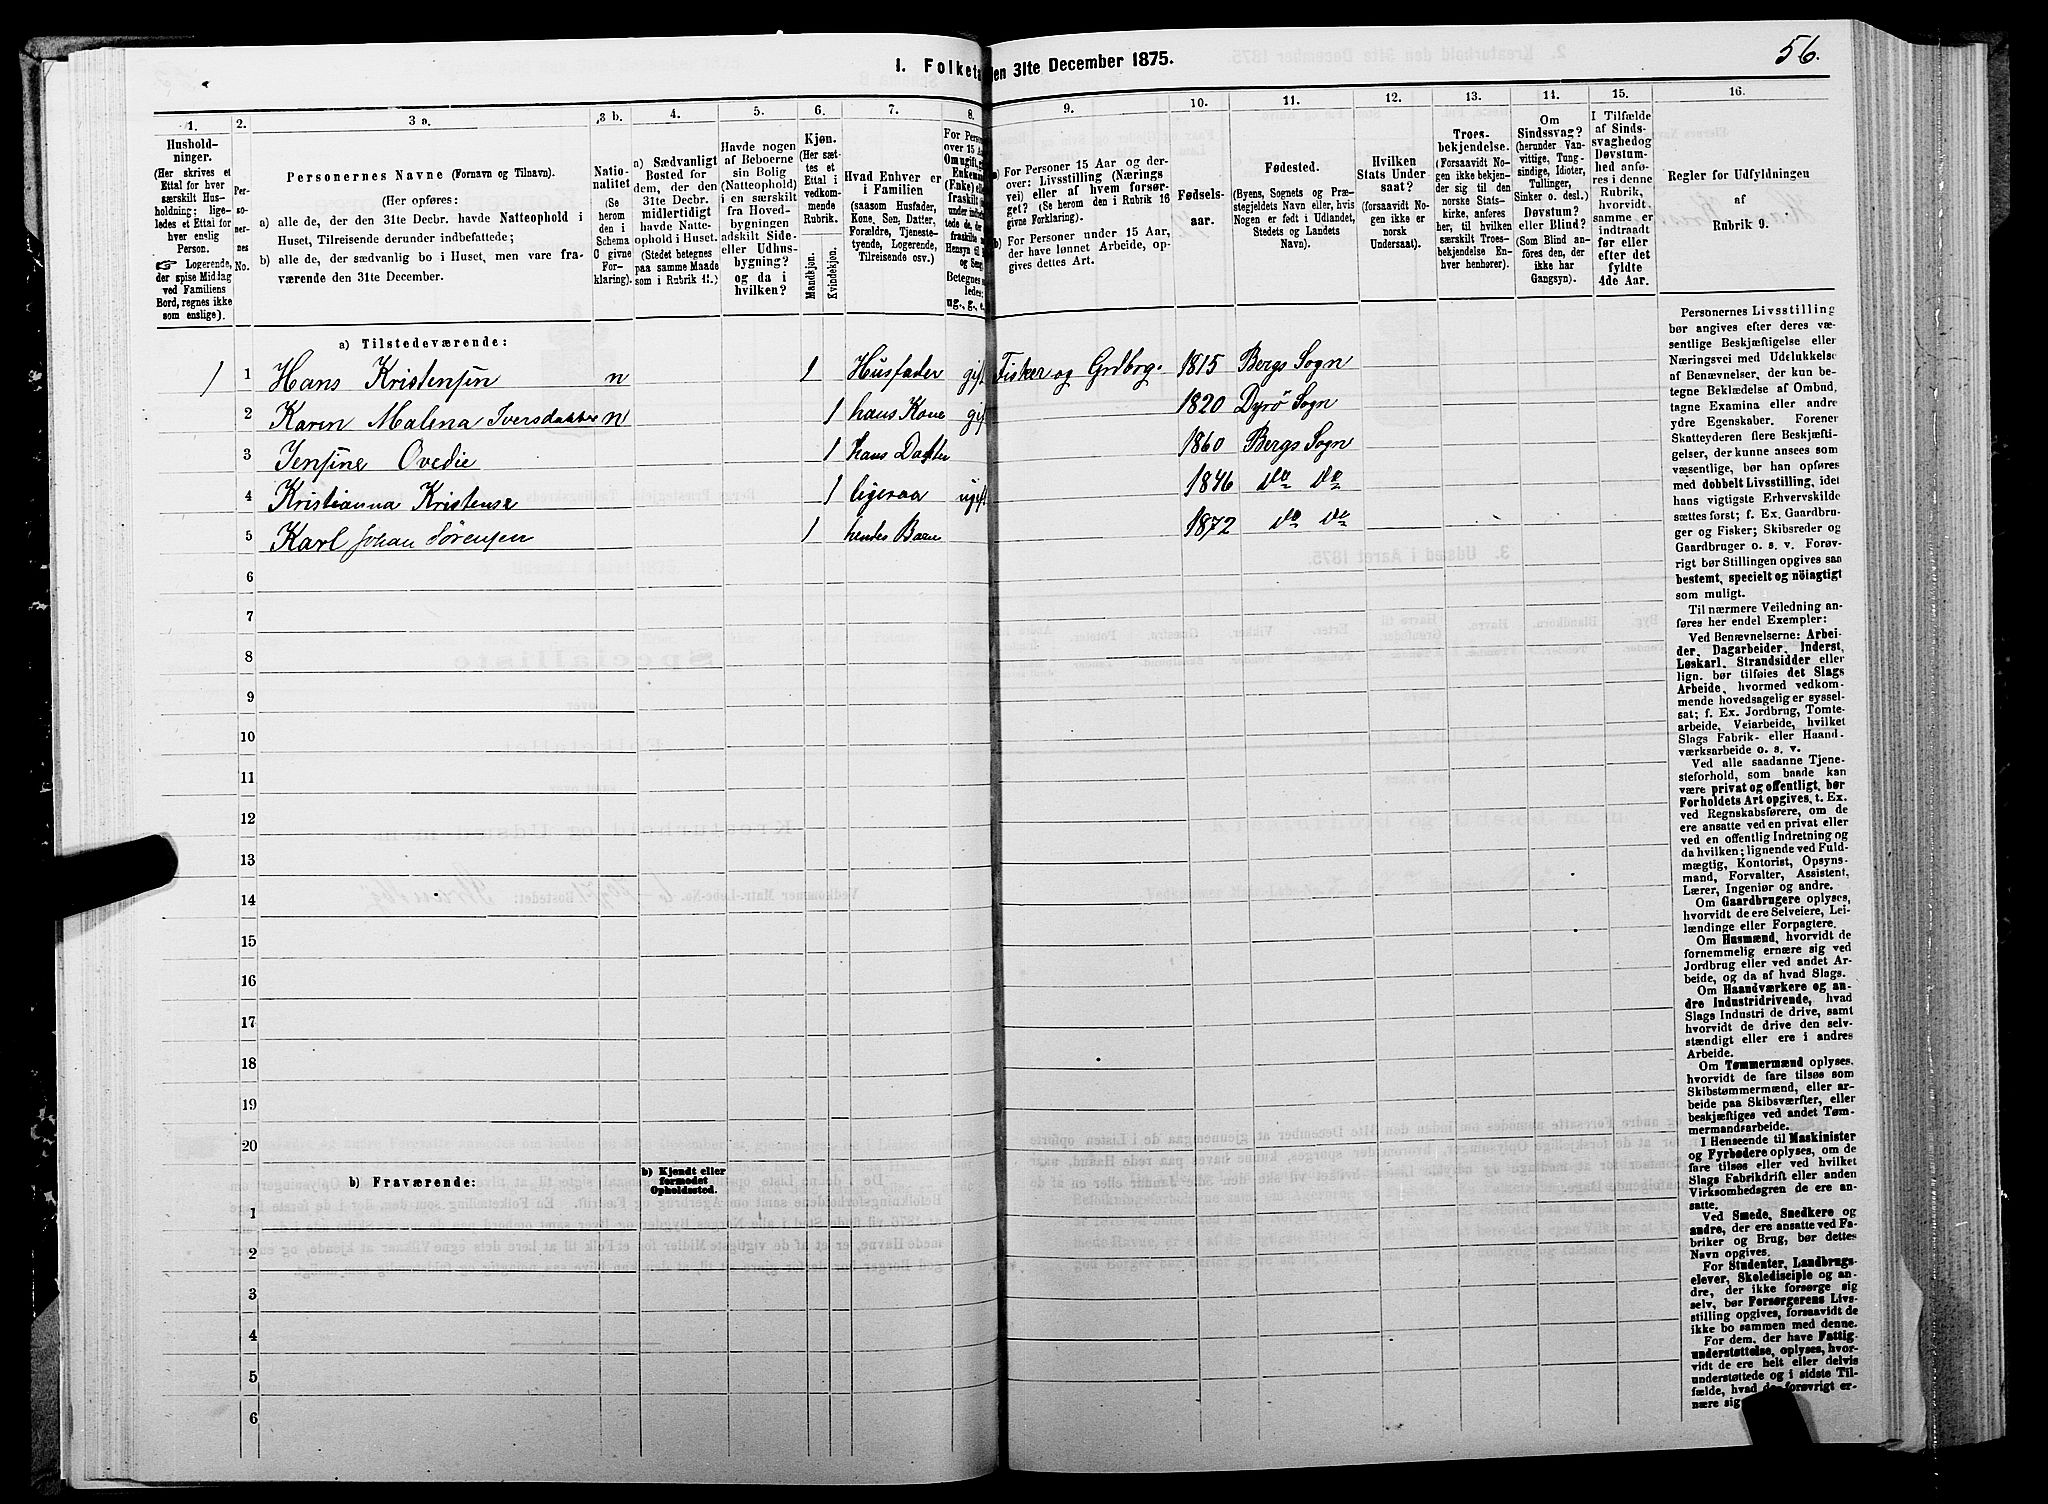 I. Folketa en 31te December 1875.
56.
1.
Husholdninger.
(Her skrives et
Ettal for hver
særskilt Husholdning;
ligeledes et Ettal for
hver enslig
Person.
Logerende,
der spise Middag
ved Familiens
Bord, regnes ikke
som enslige).
2.
Personernes
No.
3 a.
Personernes Navne (Fornavn og Tilnavn).
(Her opføres:
a) alle de, der den 31te Decbr. havde Natteophold i
Huset, Tilreisende derunder indbefattede;
b) alle de, der sædvanlig bo i Huset, men vare fraværende
den 31te December.
3 b.
Nationalitet
(Se
herom
den i
Schema
O givne
Forklaring).
4.
a) Sædvanligt
Bosted for
dem, der den
31te Decbr.
midlertidigt
havde Natteophold
i Huset.
(Stedet betegnes
paa samme Maade
som i Rubrik 11.)
5.
Havde nogen
af Beboerne
sin Bolig
(Natteophold)
i en særskilt
fra Hovedbygningen
adskilt Side-
eller Udhusbygning?
og da i
hvilken?
6.
Kjøn.
(Her sættes
et
Ettal i
vedkommende
Rubrik.
Mandkjøn.
Kvindekjøn.
7.
Hvad Enhver er
i Familien
(saasom Husfader,
Kone, Søn, Datter,
Forældre, Tjenestetyende,
Logerende,
Tilreisende osv.)
8.
For Person
over 15 Aa
Om ugift, g
Enkem
(Enke) el
fraskilt
9.
a) For Personer 15 Aar og derover:
Livsstilling (Næringsvei)
eller af hvem forsørget?
(Se herom den i Rubrik 16
givne Forklaring).
b) For Personer under 15 Aar,
der have lønnet Arbeide, opgives
dettes Art.
10.
Fødselsaar.
11.
Fødested.
(Byens, Sognets og Præstegjeldets
Navn eller, hvis
Nogen er født i Udlandet,
Stedets og Landets
Navn).
12.
Hvilken
Stats Undersaat?
(forsaavidt Nogen
ikke er
norsk
Undersaat).
13.
Troesbekjendelse.
(Forsaavidt Nogen
ikke bekjender
sig til den
norske Statskirke,
anføres
her, til hvilken
særskilt Troesbekjendelse
Enhver
henhører).
14.
Om
Sindssvag?
(herunder Vanvittige,
Tungsindige,
Idioter,
Tullinger,
Sinker o. desl.)
Døvstum?
eller Blind?
(Som Blind anføres
den, der
ikke har
Gangsyn).
15.
I Tilfælde
af Sindssvaghed
og
Døvstumhed
anføres
i denne
Rubrik,
hvorvidt
samme er
indtraadt
før eller
efter det
fyldte
4de Aar.
16.
Regler for Udfyldningen
af
Rubrik 9.
a) Tilstedeværende:
1 1 Hans Kristensen n 1 Husfader gift Fisker og Grdbrg. 1815 Bergs Sogn
2 Karen Malena Iversdatter n 1 hans Kone gift 1820 Dyrø Sogn
3 Jensine Ovedie 1 hans Datter 1860 Bergs Sogn
4 Kristianna Kristense 1 ligesaa ugift 1846 do do
5 Karl Johan Sørensen 1 hendes Barn 1872 do do
6
7
8
9
10
11
12
13
14
15
16
17
18
19
20
b) Fraværende:
b) Kjendt eller
formodet
Opholdssted.
1
2
3
4
5
6
Personernes Livsstilling
bør angives efter deres væsentlige
Beskjæftigelse eller
Næringsvei med Udelukkelse
af Benævnelser, der kun betegne
Beklædelse af Ombud,
tagne Examina eller andre
ydre Egenskaber. Forener
Skatteyderen flere Beskjæftigelser,
der kunne ansees som
væsentlige, bør han opføres
med dobbelt Livsstilling, idet
hans vigtigste Erhvervskilde
sættes først; f. Ex. Gaardbruger
og Fisker; Skibsreder og
Gaardbruger o. s. v. Forøvrigt
bør Stillingen opgives saa
bestemt, specielt og nöiagtigt
som muligt.
Til nærmere Veiledning anføres
her endel Exempler:
Ved Benævnelserne: Arbeider,
Dagarbeider, Inderst,
Løskarl, Strandsidder eller
lign. bør tilføies det Slags
Arbeide, hvormed vedkommende
hovedsagelig er sysselsat;
f. Ex. Jordbrug, Tomtearbeide,
Veiarbeide, hvilket
Slags Fabrik- eller Haandværksarbeide
o. s. v.
Ved alle saadanne Tjenesteforhold,
som baade kan
være privat og offentligt, bør
Forholdets Art opgives, t. Ex.
ved Regnskabsførere, om de
ere ansatte ved en privat eller
ved en offentlig Indretning og
da hvilken; lignende ved Fuldmægtig,
Kontorist, Opsynsmand,
Forvalter, Assistent,
Lærer, Ingeniør og andre.
Om Gaardbrugere oplyses,
hvorvidt de ere Selveiere, Leilændinge
eller Forpagtere.
Om Husmænd, hvorvidt de
fornemmelig ernære sig ved
Jordbrug eller ved andet Arbeide,
og da af hvad Slags.
Om Haandværkere og andre
Industridrivende, hvad
Slags Industri de drive, samt
hvorvidt de drive den selvstændigt
eller ere i andres
Arbeide.
Om Tømmermænd oplyses,
hvorvidt de fare tilsøs som
Skibstømmermænd, eller arbeide
paa Skibsværfter, eller
beskjæftiges ved andet Tømmermandsarbeide.
I Henseende til Maskinister
og Fyrbødere oplyses, om de
fare tilsøs eller ved hvilket
Slags Fabrikdrift eller anden
Virksomhedsgren de ere ansatte.
Ved Smede, Snedkere og
andre, der ere ansatte ved Fabriker
og Brug, bør dettes
Navn opgives.
For Studenter, Landbrugselever,
Skoledisciple og andre,
der ikke forsørge sig
selv, bør Forsørgerens Livsstilling
opgives, forsaavidt de
ikke bo sammen med denne.
For dem, der have Fattigunderstøttelse,
oplyses, hvorvidt
de ere helt eller delvis
understøttede og i sidste Tilfælde,
hvad de forøvrigt ernære
sig